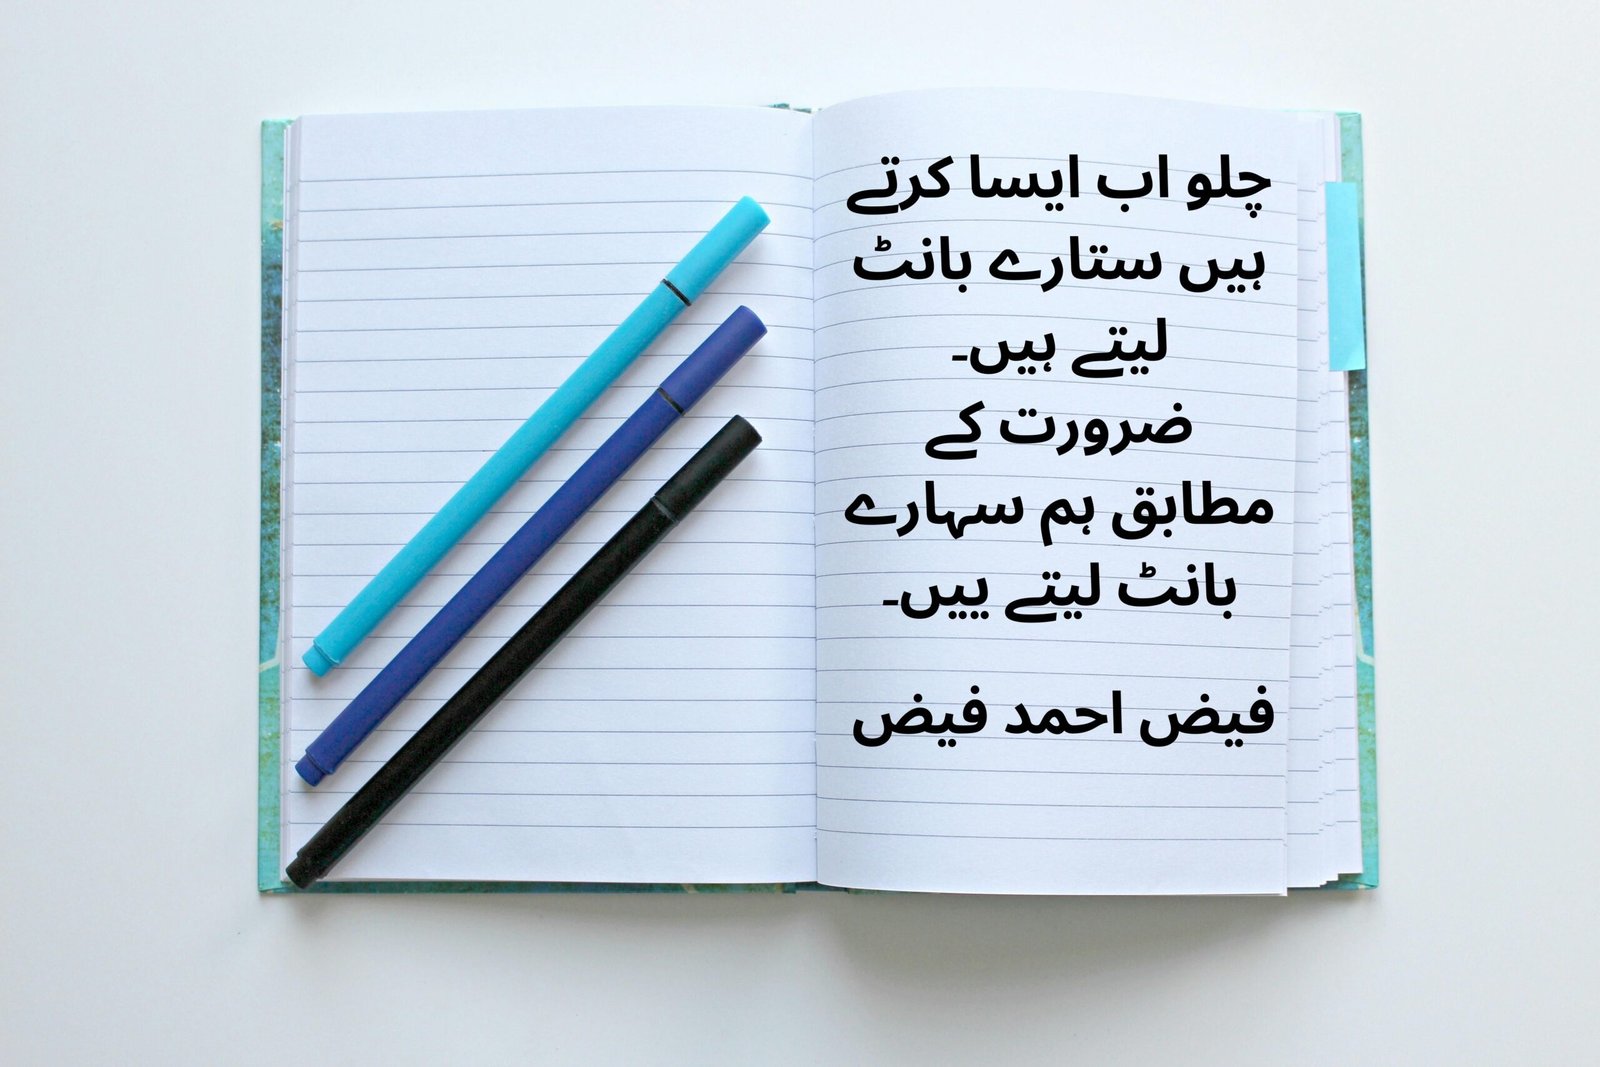 چلو اب ایسا کرتے
ہیں ستارے بانٹ
لیتے ہیں۔
ضرورت کے
مطابق ہم سہارے
بانٹ لیتے ییں۔
فیض احمد فیض